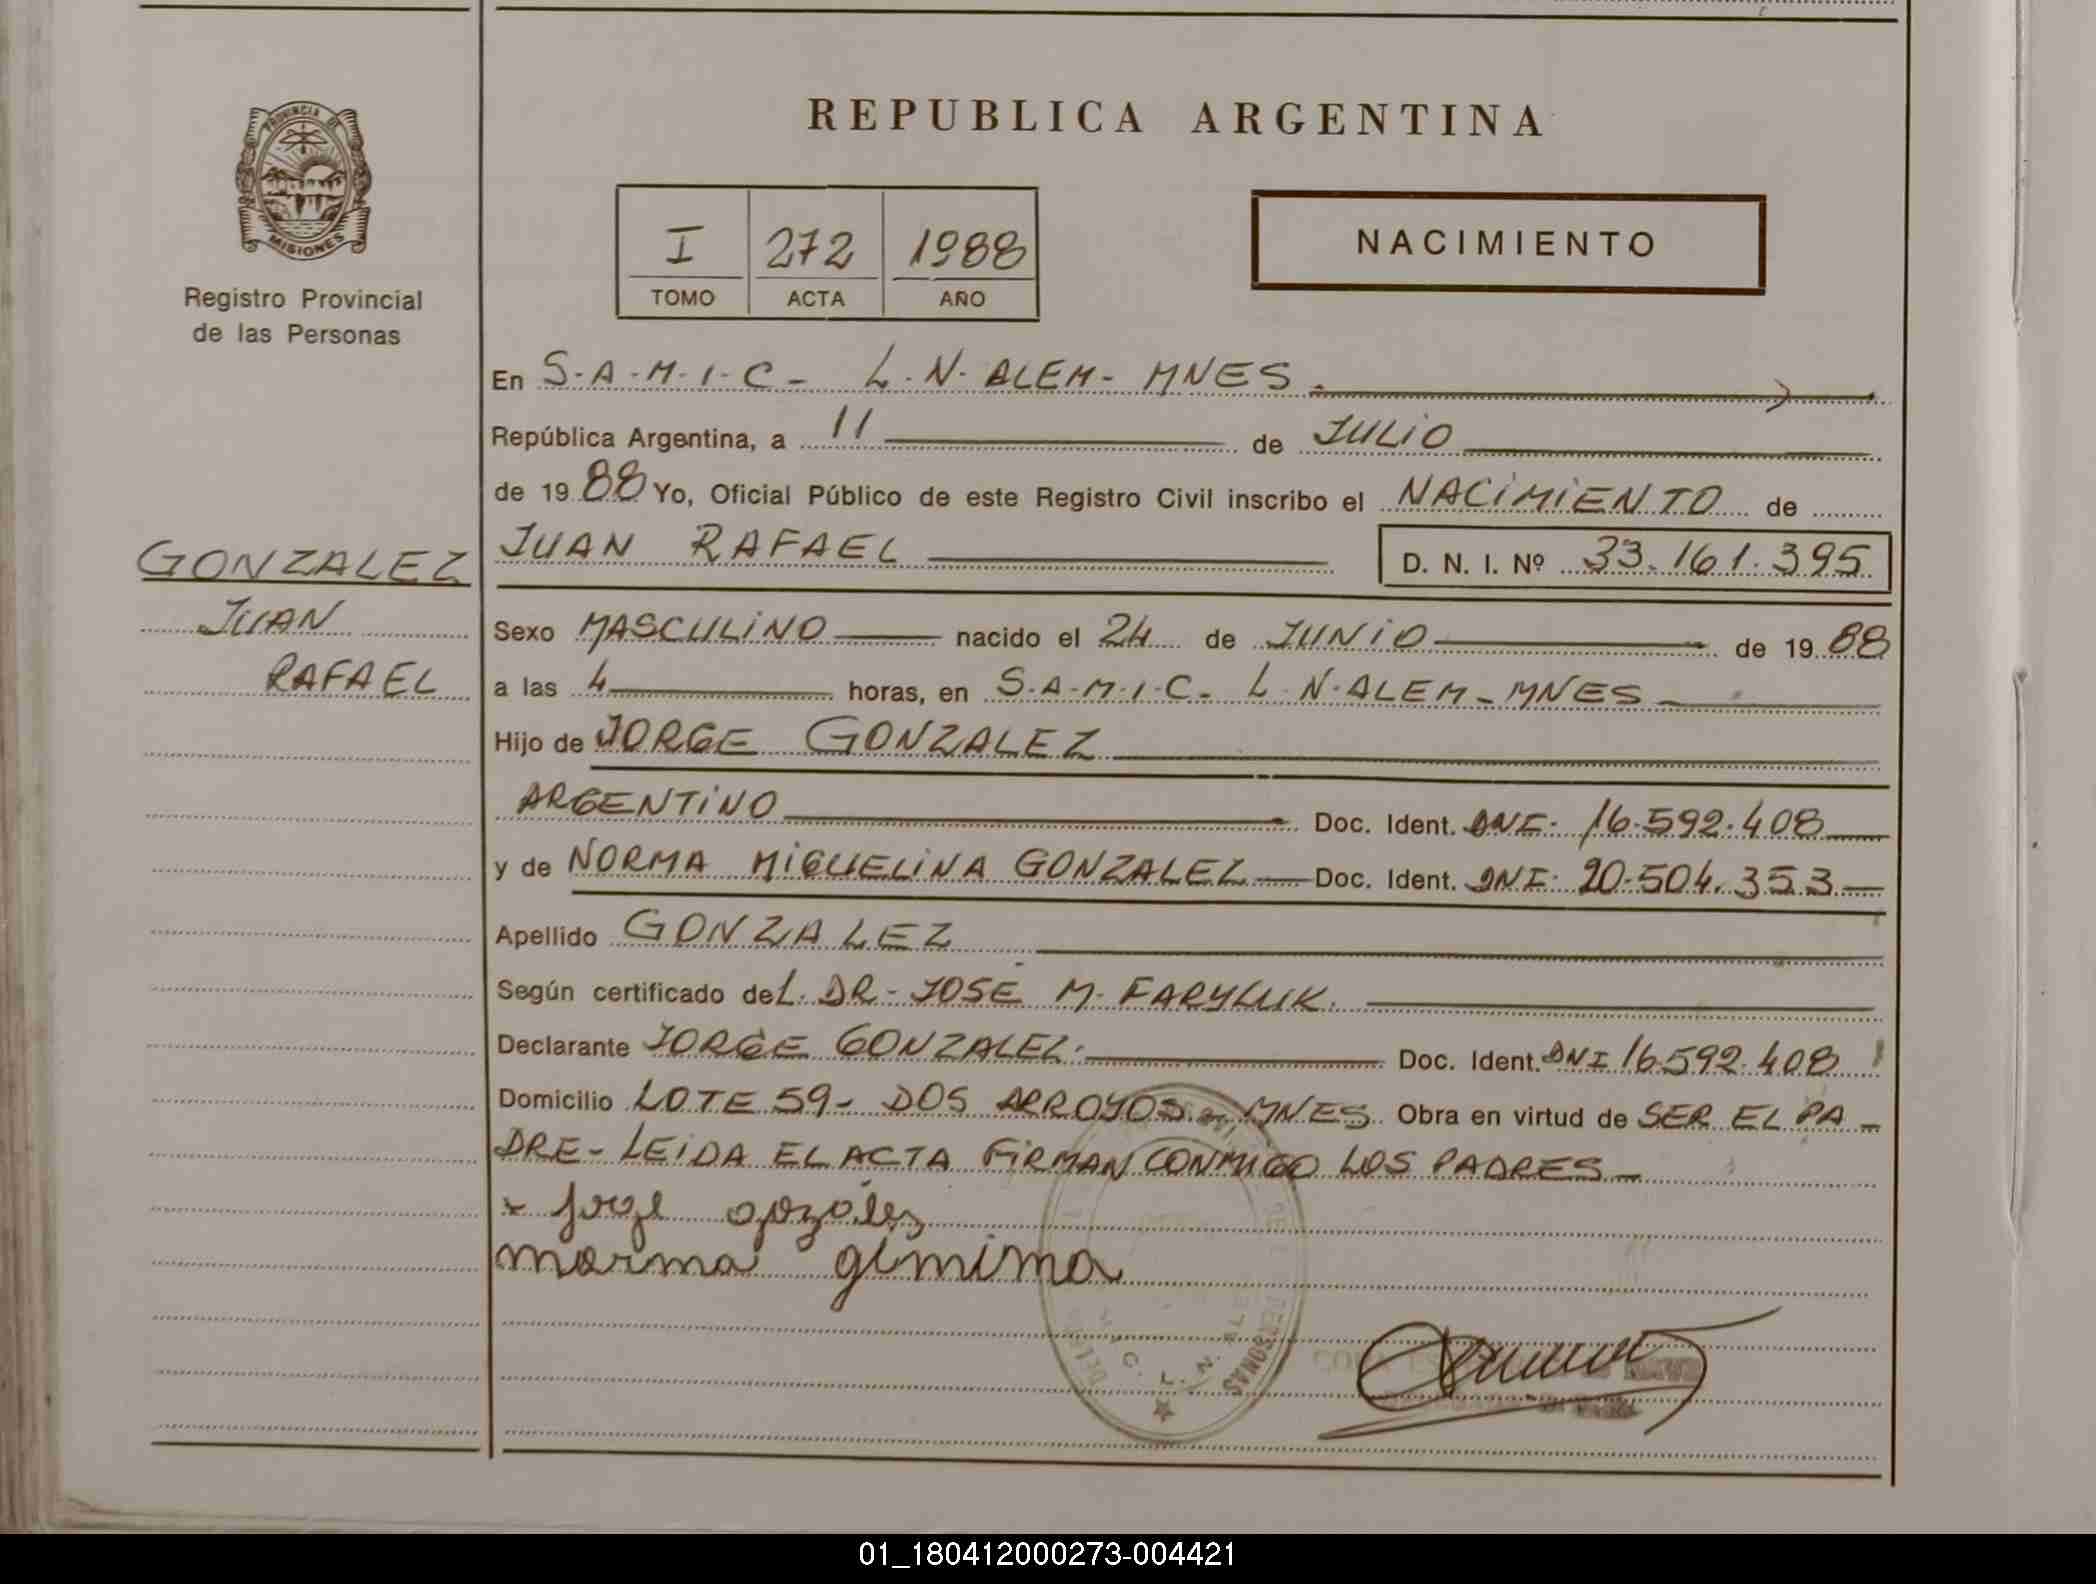 PROVINCIA DE
MISIONES
Registro Provincial
de las Personas
GONZALEZ
JUAN
RAFAEL
REPUBLICA ARGENTINA
I 272 1988
TOMO ACTA AÑO
NACIMIENTO
En S.A.M.I.C - L.N. ALEM - MNES.
República Argentina, a 11 de JULIO
de 1988 Yo, Oficial Público de este Registro Civil inscribo el NACIMIENTO de
JUAN RAFAEL D. N. I. Nº 33.161.395
Sexo MASCULINO nacido el 24 de JUNIO de 1988
a las 4 horas, en S.A.M.I.C. L.N. ALEM - MNES
Hijo de JORGE GONZALEZ
ARGENTINO Doc. Ident. DNI. 16.592.408
y de NORMA MIGUELINA GONZALEZ Doc. Ident. DNI. 20.504.353
Apellido GONZALEZ
Según certificado del. DR. JOSE M. FARYLUK.
Declarante JORGE GONZALEZ. Doc. Ident. DNI 16.592.408
Domicilio LOTE 59 - DOS ARROYOS - MNES Obra en virtud de SER EL PA-
DRE - LEIDA EL ACTA FIRMAN CONMIGO LOS PADRES -
PERSONAS
L.N. ALE
01_180412000273-004421